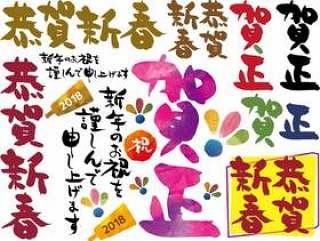 恭賀新春
恭賀
新春
賀正
賀正
新年のお祝を
謹んで申し上げます
恭賀新春
2018
新年のお祝を
謹しんで
申し上げます
賀正
祝
賀正
2018
恭賀
新春